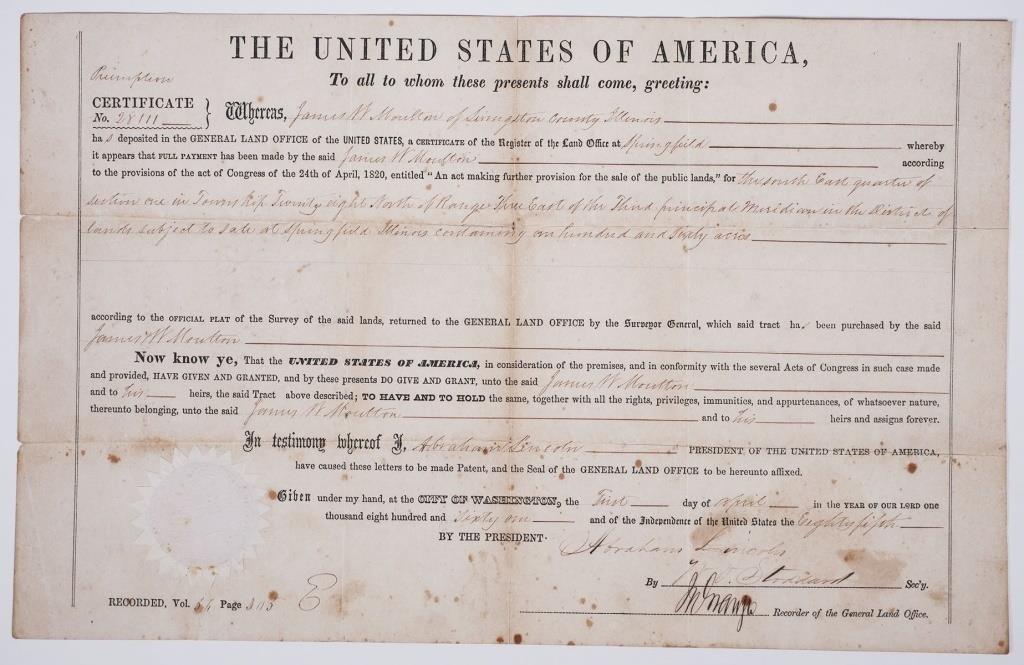 THE UNITED STATES OF AMERICA,
To all to whom these presents shall come, greeting:
Preemption
CERTIFICATE
No. 28111
Whereas, James W Moulton of Livingston County Illinois
has deposited in the GENERAL LAND OFFICE of the UNITED STATES, a CERTIFICATE of the Register of the Land Office at Springfield whereby
it appears that FULL PAYMENT has been made by the said James W Moulton according
to the provisions of the act of Congress of the 24th of April, 1820, entitled "An act making further provision for the sale of the public lands," for the South East quarter of
Section one in Township Twenty eight North of Range Five East of the Third principal Meridian in the District of
lands subject to sale at Springfield Illinois containing one hundred and Sixty acres
according to the OFFICIAL PLAT of the Survey of the said lands, returned to the GENERAL LAND OFFICE by the Surveyor General, which said tract has been purchased by the said
James W Moulton
Now know ye, That the UNITED STATES OF AMERICA, in consideration of the premises, and in conformity with the several Acts of Congress in such case made
and provided, HAVE GIVEN AND GRANTED, and by these presents DO GIVE AND GRANT, unto the said James W Moulton
and to his heirs, the said Tract above described; TO HAVE AND TO HOLD the same, together with all the rights, privileges, immunities, and appurtenances, of whatsoever nature,
thereunto belonging, unto the said James W Moulton and to his heirs and assigns forever.
In testimony whereof I, Abraham Lincoln PRESIDENT OF THE UNITED STATES OF AMERICA,
have caused these letters to be made Patent, and the Seal of the GENERAL LAND OFFICE to be hereunto affixed.
Given under my hand, at the CITY OF WASHINGTON, the First day of April in the YEAR OF OUR LORD one
thousand eight hundred and Sixty one and of the Independence of the United States the Eighty fifth
BY THE PRESIDENT: Abraham Lincoln
By W. O. Stoddard Sec'y.
Recorder of the General Land Office.
RECORDED, Vol. Page E